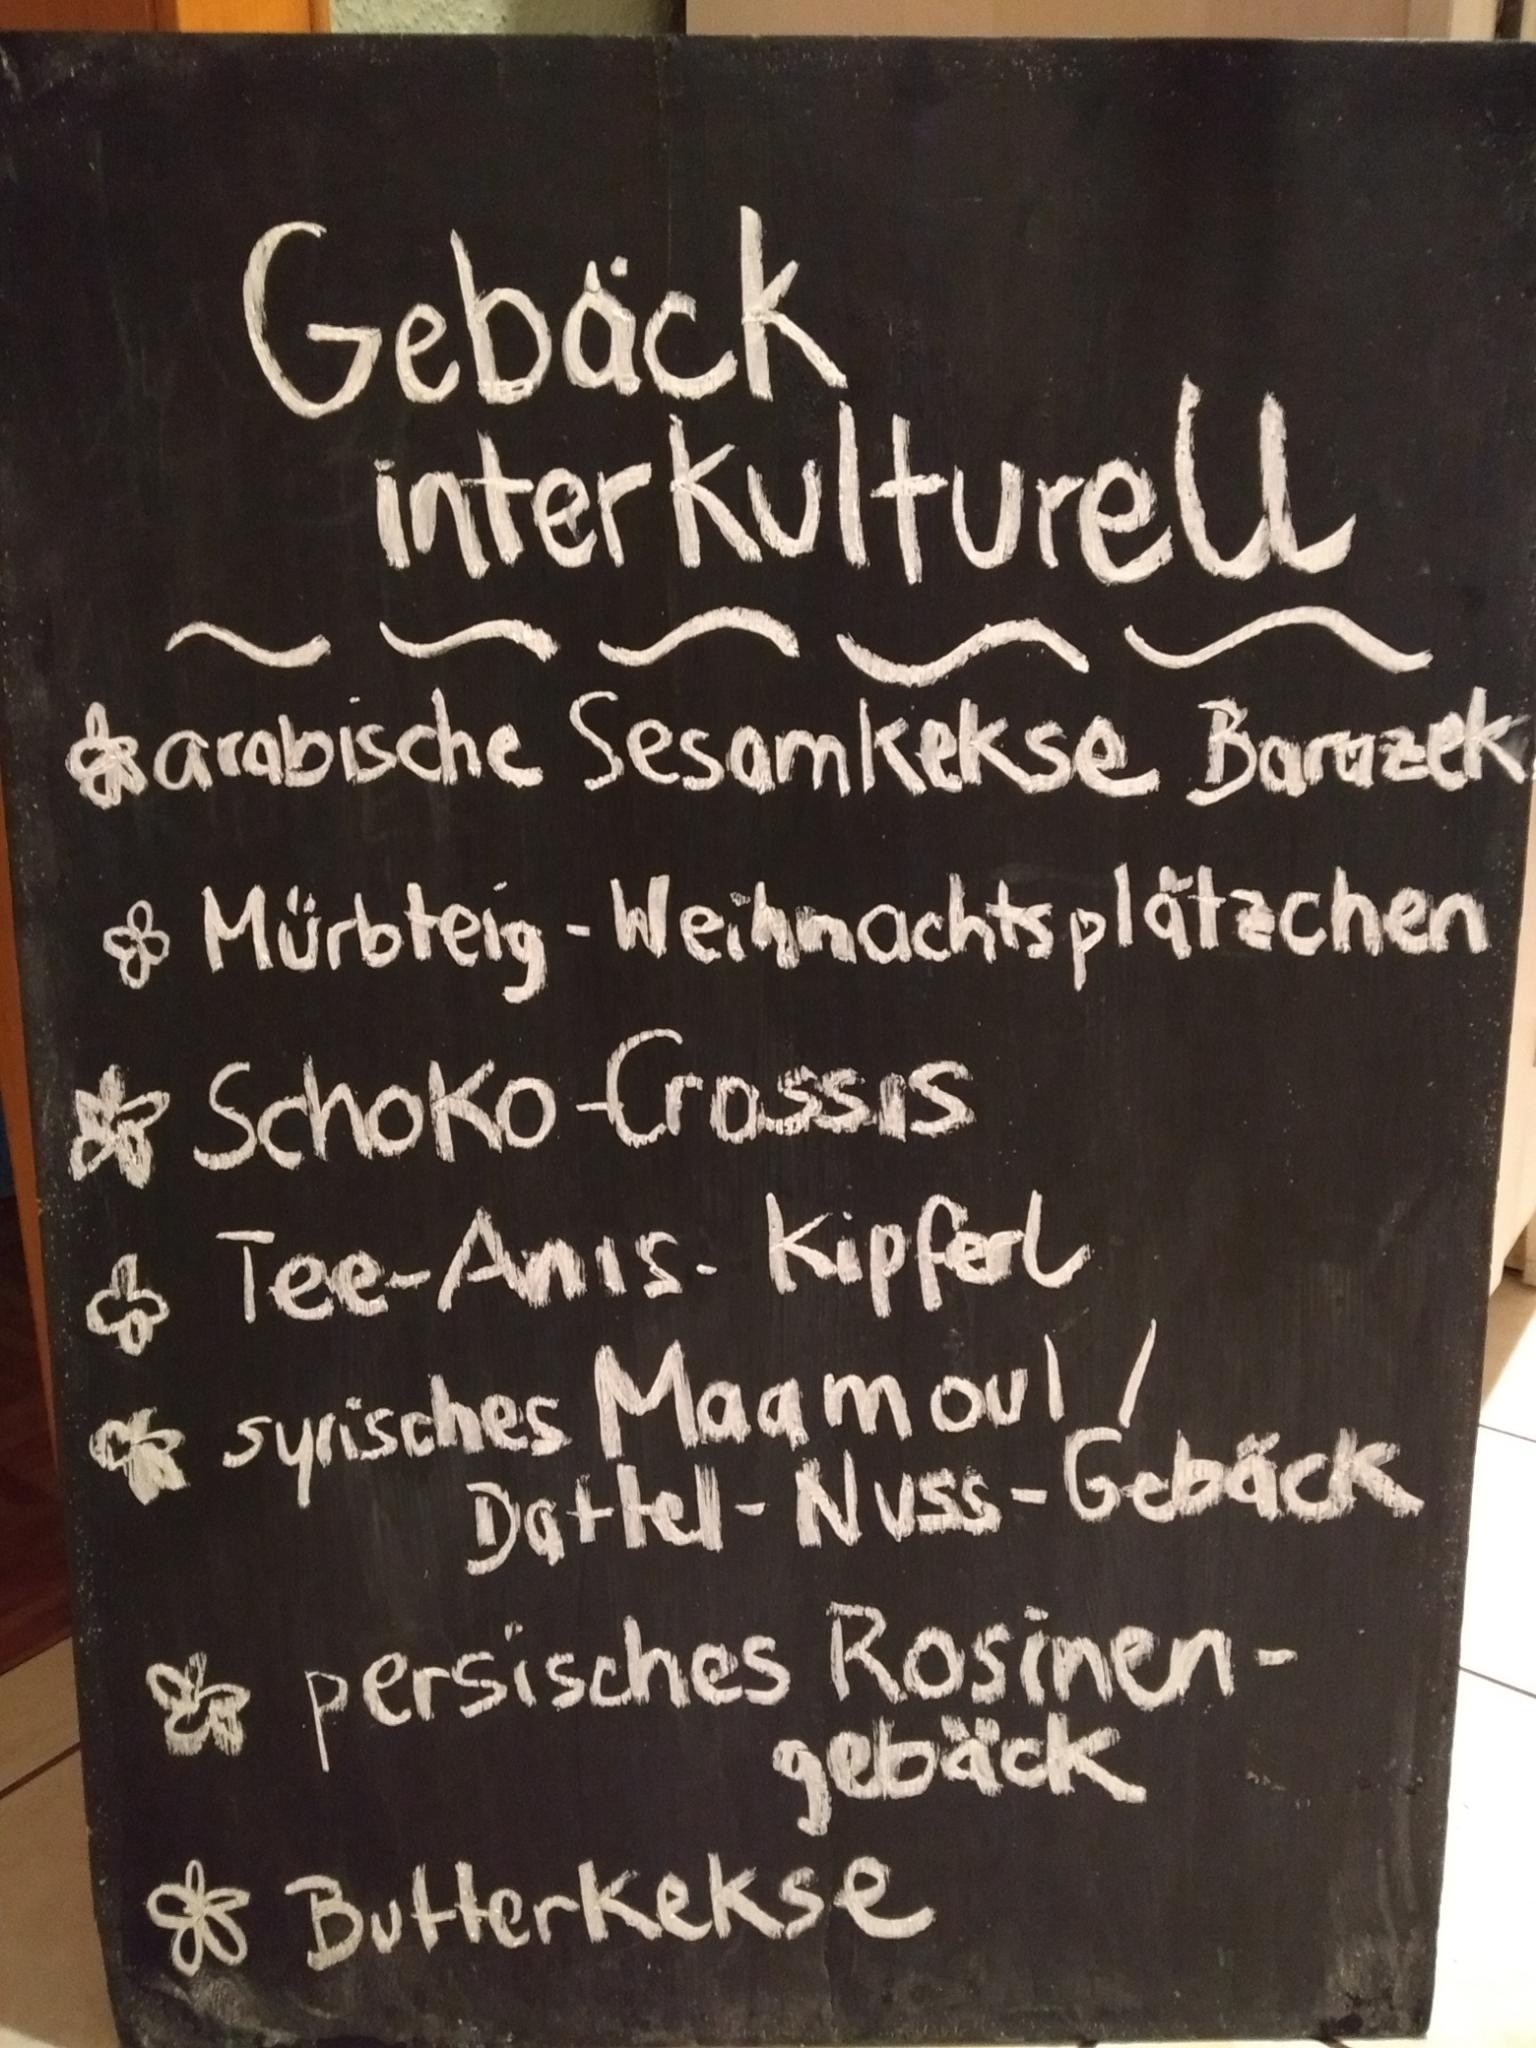 Gebäck
interkulturell
arabische Sesamkekse Barazek
Mürbteig-Weihnachtsplätzchen
Schoko-Crossis
Tee-Anis-Kipferl
syrisches Maamoul /
Dattel-Nuss-Gebäck
persisches Rosinen-
gebäck
Butterkekse